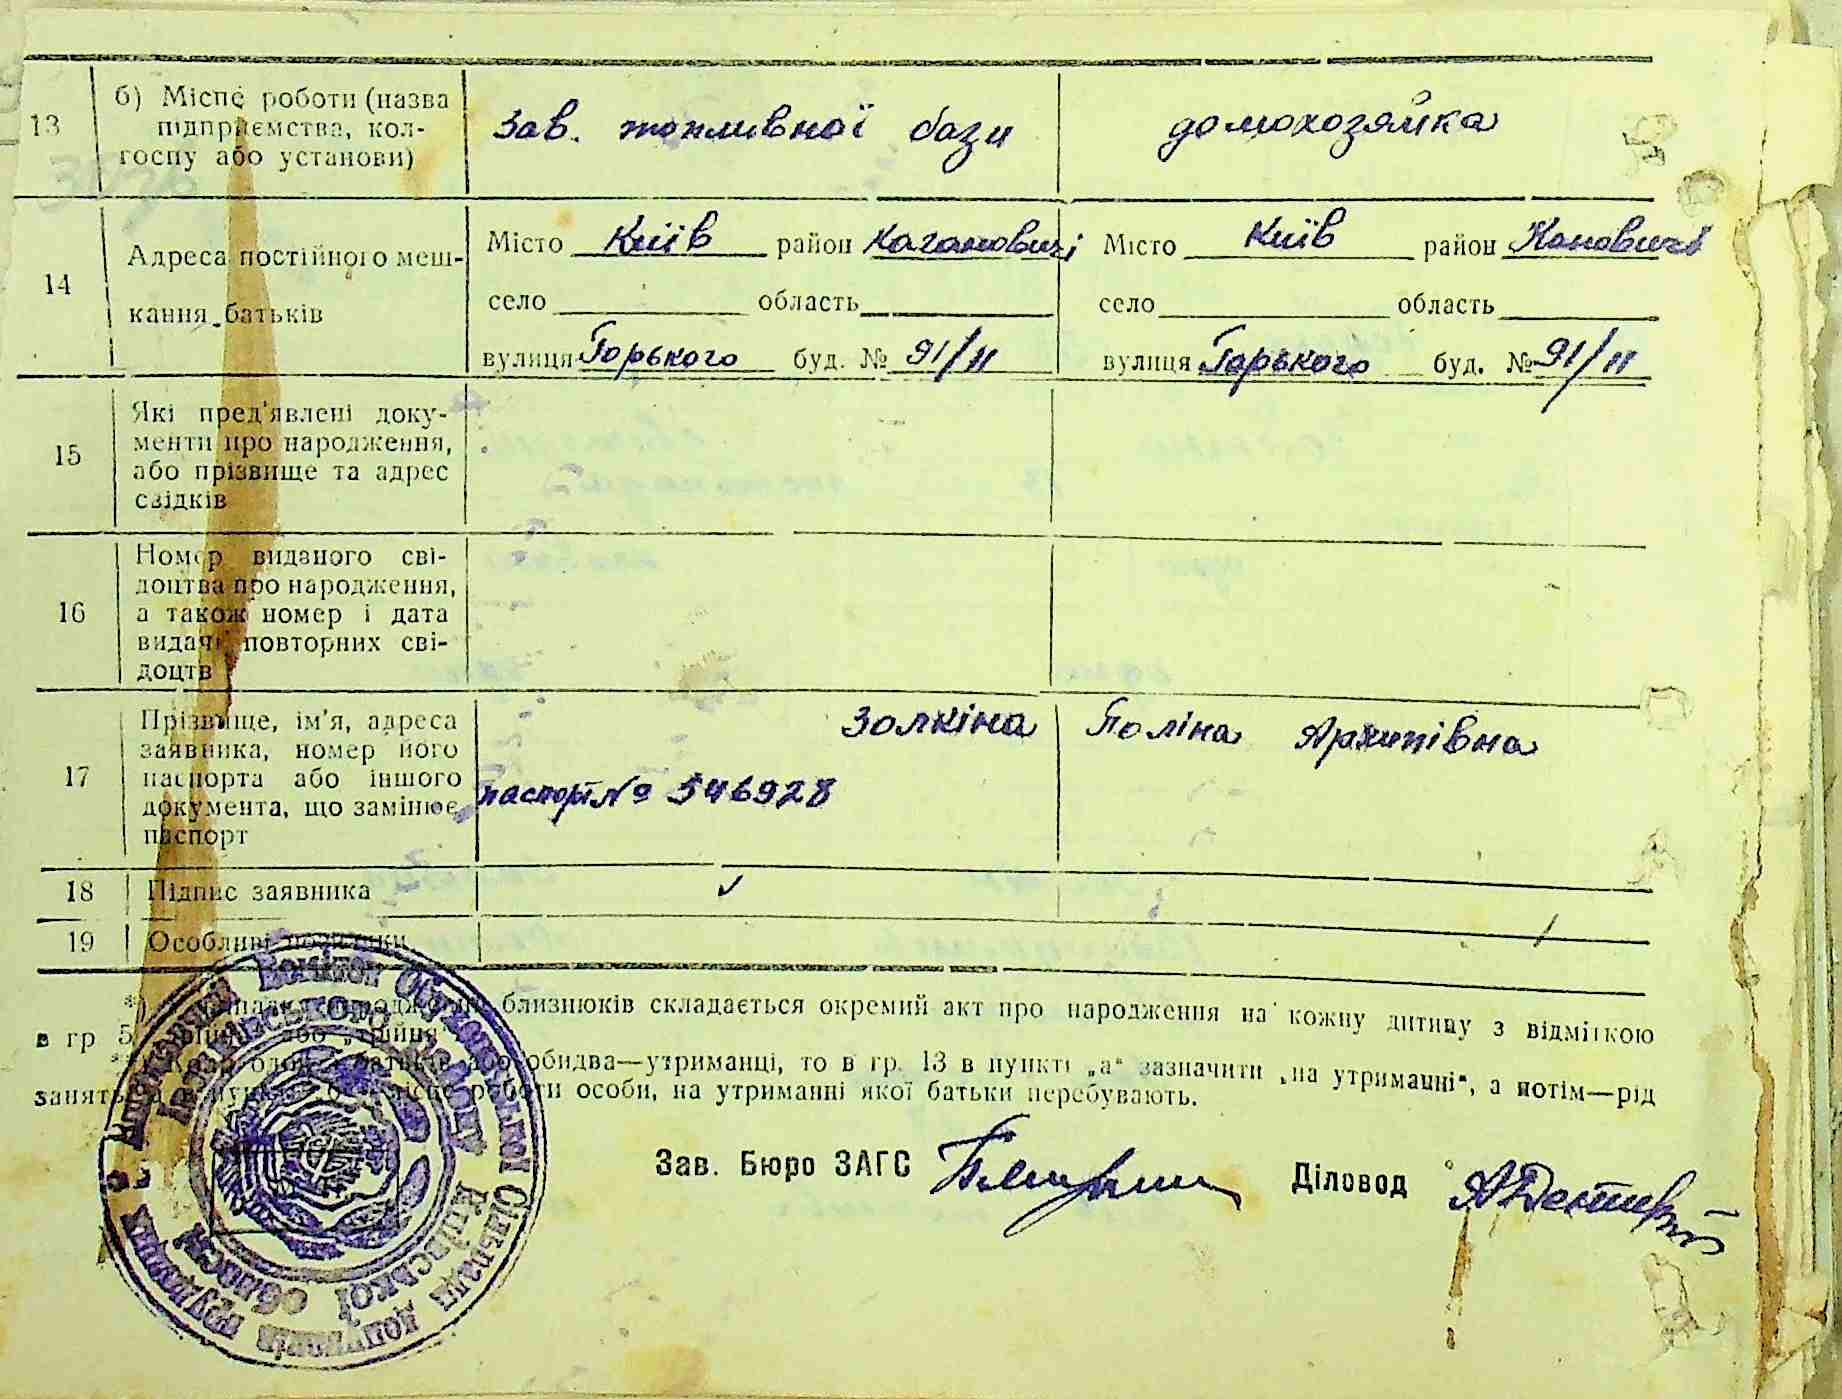 13
б) Місце роботи (назва
підприємства, кол-
госпу або установи)
Зав. топливної бази
домохозяйка
14
Адреса постійного меш-
кання батьків
Місто Київ район Кагановичі
село область
вулиця Горького буд. № 91/11
Місто Київ район
село область
вулиця Горького буд. № 91/11
15
Які пред'явлені доку-
менти про народження,
або прізвище та адрес
свідків
16
Номер виданого сві-
доцтва про народження,
а також номер і дата
видачі повторних сві-
доцтв
17
Прізвище, ім'я, адреса
заявника, номер його
паспорта або іншого
документа, що замінює
паспорт
Золкіна Поліна Архипівна
паспорт № 546928
18
Підпис заявника
19
Особливі
близнюків складається окремий акт про народження на кожну дитину з відміткою
в гр 5 або „трійня
обидва—утриманці, то в гр. 13 в пункті „а“ зазначити „на утриманні“, а потім—рід
роботи особи, на утриманні якої батьки перебувають.
Зав. Бюро ЗАГС
Діловод
Київської
області